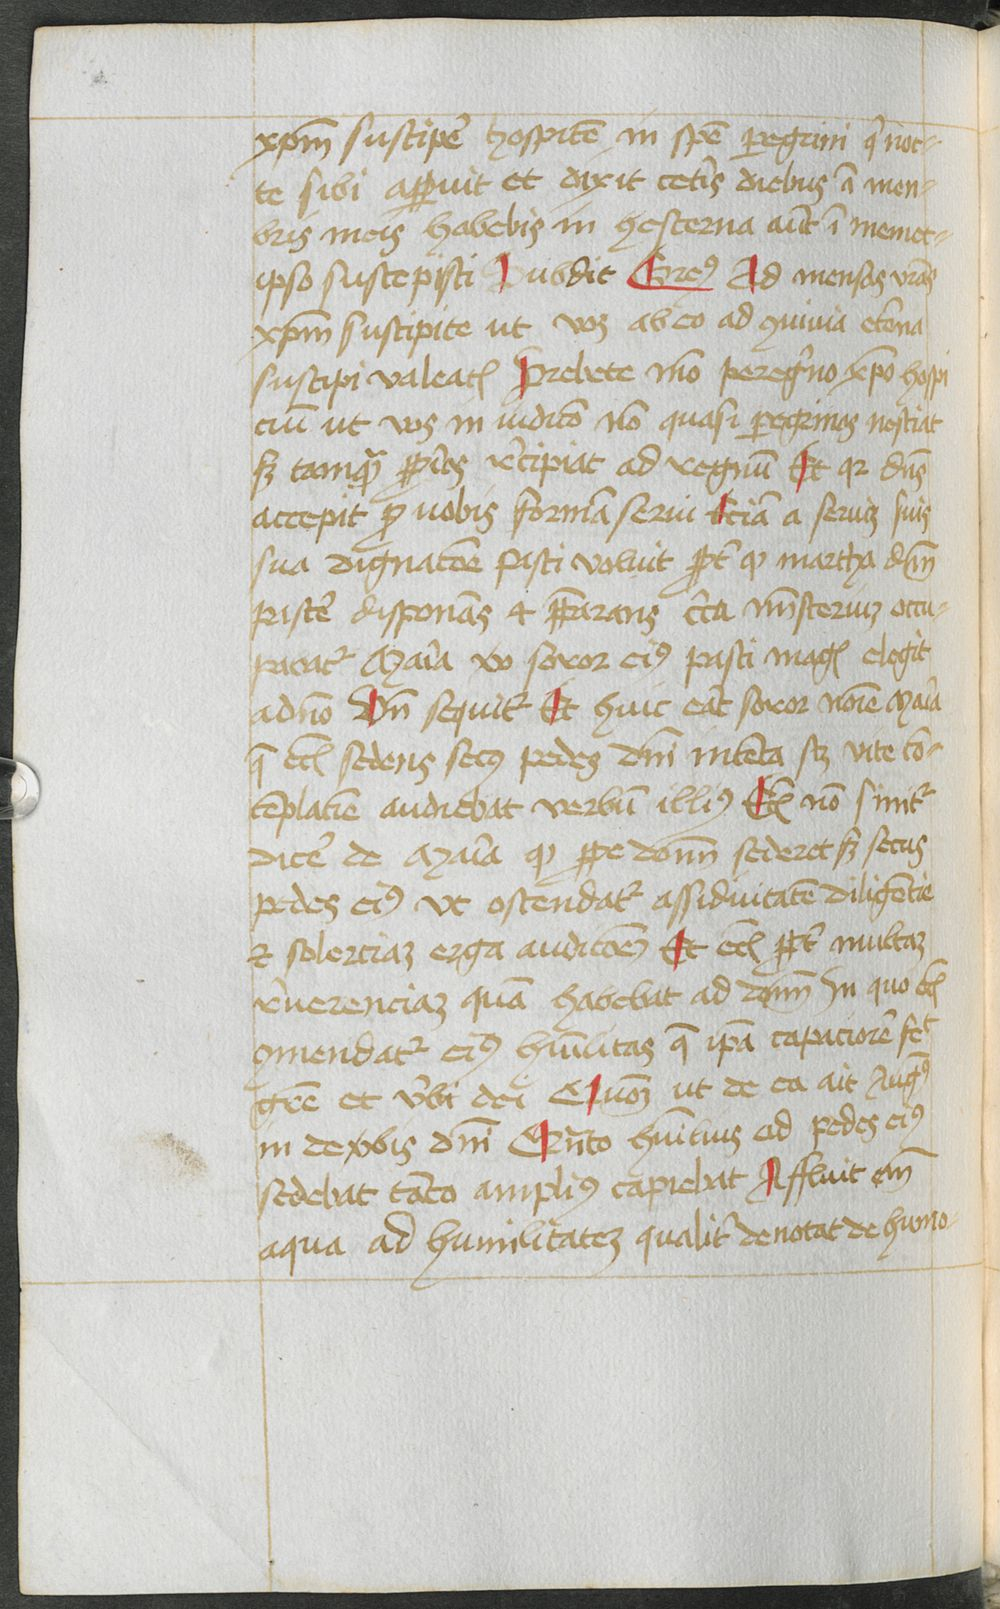 xpm̄ suscipe᷑ hospitē in spē peg̲rini q᷑ noc-
te sibi app̲uit et dixit cete᷑is diebus ī mem-
bris meis habebis in hesterna aūt ī memet-
ipso suscepisti Subdit Greꝰ Ad mensas vr̄as
xpm̄ suscipite ut vos ab eo ad ꝯuiuia et̄na
suscipi valeatꝭ Prebete mō peregͥno xp̄o hospi
ciū ut vos in iudicō nō quasi peg̲rinos nesciat
sꝫ tamqͣ p̱p̱ios r᷑cipiat ad regnū Et qꝛ dn̄s
accepit ꝓ nobis formā serui Eciā a seruis suis
sua dignacōe pasci voluit ꝓpt᷑ qꝫ martha dn̄m
pasce᷑ disponēs ⁊ p̄parans c᷑ca mīsteriuꝫ occu-
pacat᷑ Maīa vo soror eiꝰ pasci magꝭ elegit
a dn̄o Vn̄ sequit᷑ Et huic eāt soror noīe Maīa
q̄ ecꝭ sedens secꝰ pedes dn̄i intēta sꝫ vite cō-
tēplatīe audiebat verbū illiꝰ Ecꝭ nō simit᷑
dice᷑ de Maīa qꝫ ꝓpe dom̄ sederet sꝫ secus
pedes eiꝰ vt ostendat᷑ assiduitatē diligētie
⁊ solerciaꝫ erga audicōeꝫ Et ecꝭ ꝓpt᷑ multaꝫ
r᷑uerenciaꝫ quā habebat ad dom̄ In quo ecꝭ
ꝯmendat᷑ eiꝰ huīlitas q̄ ip̄a capaciorē fec᷑
grē et v᷑bi dei Quoꝫ ut de ea ait Augꝰ
in de v᷑bis dn̄i Qn̄to huīlius ad pedes eiꝰ
sedebat tāto ampliꝰ capiebat Affluit em̄
aqua ad humilitateꝫ qualit᷑ denotat de humo-